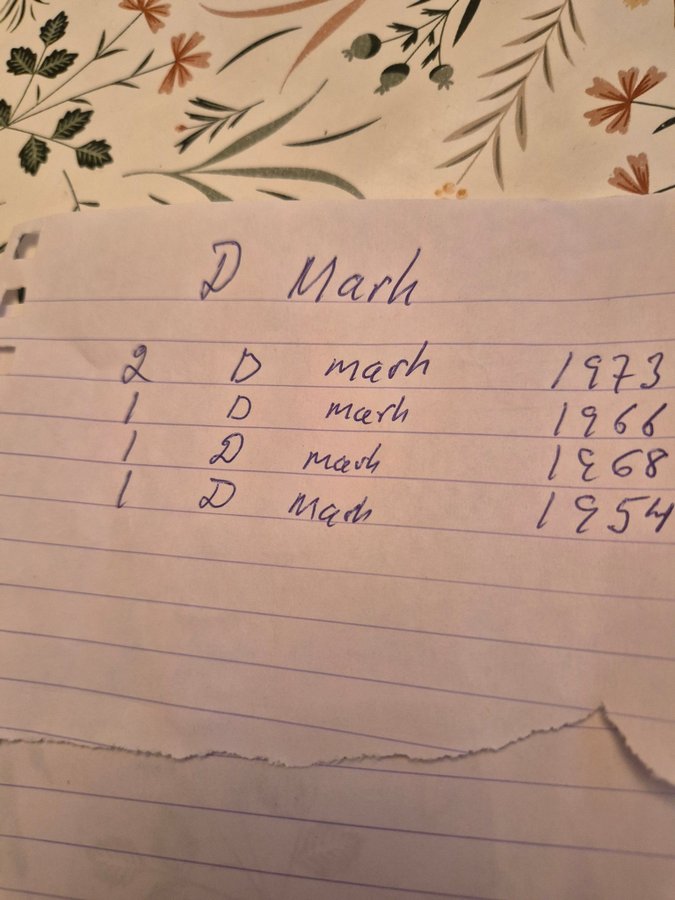 D Mark
2 D mark 1973
1 D mark 1966
1 D mark 1968
1 D Mark 1954